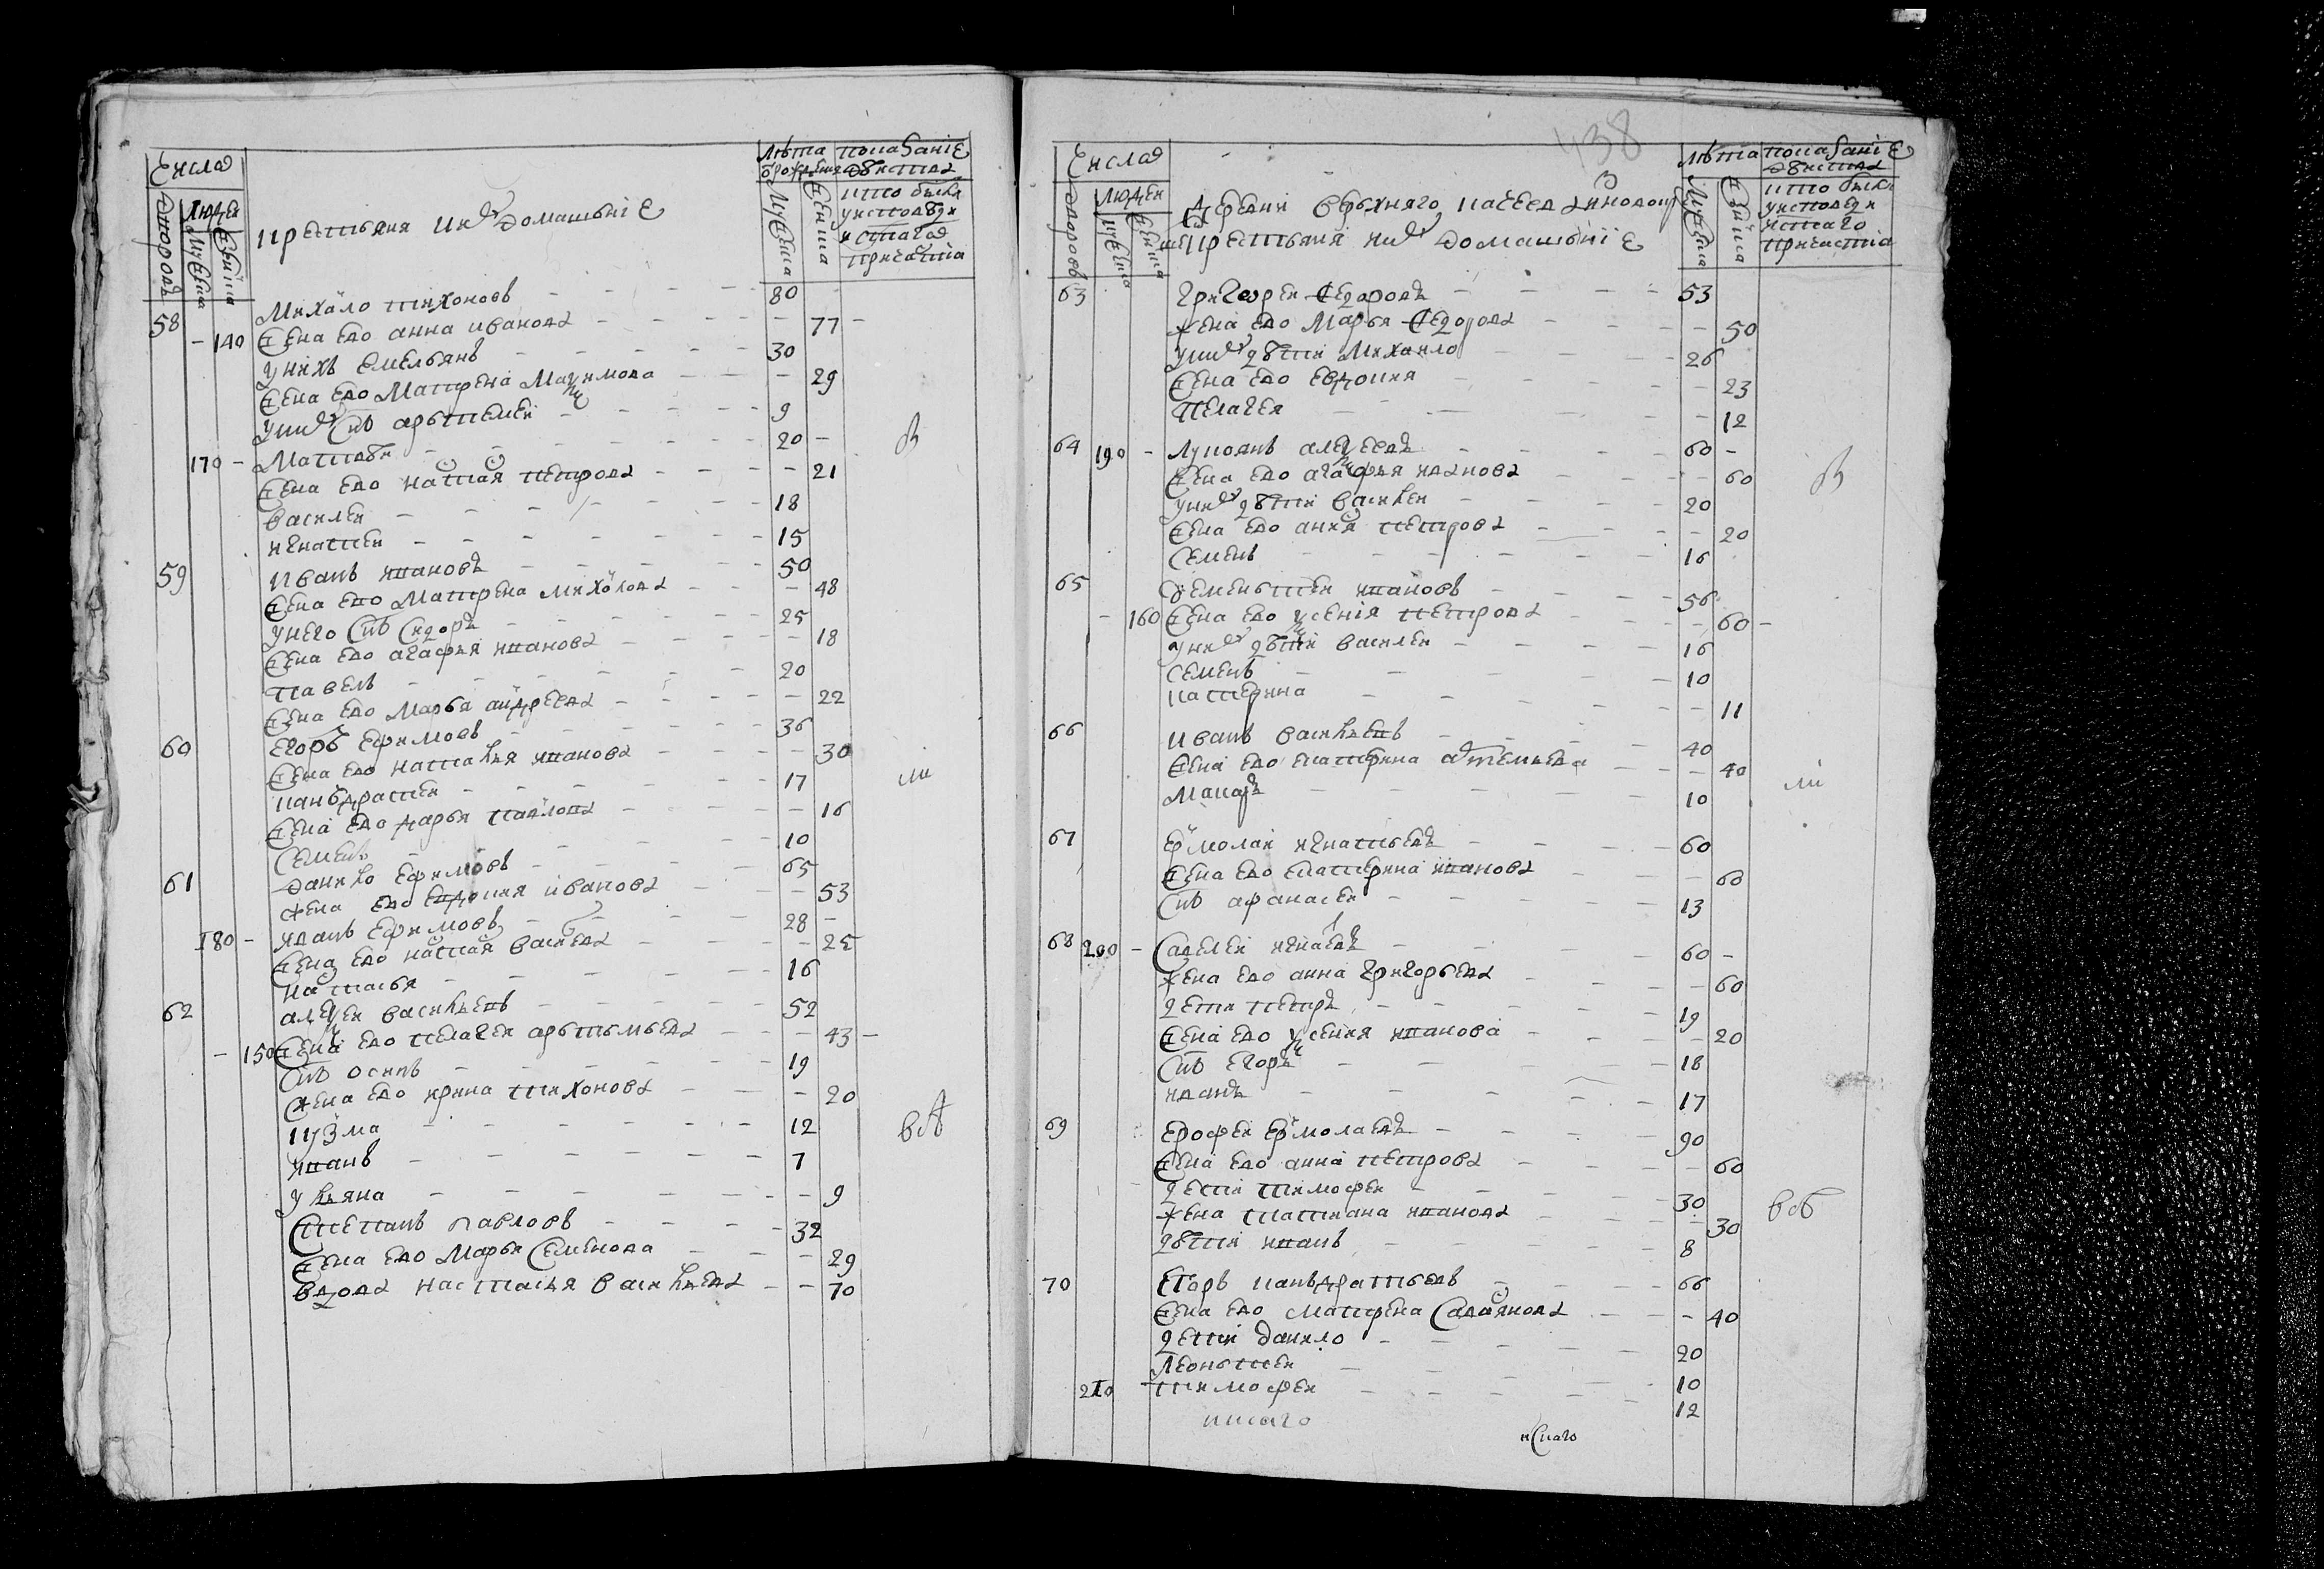 438
Числа
Дворовъ
Людей
Мужеска
Женска
крестьяня и ихъ домашьние
Лѣта
отрожденя
Мужеска
Женска
показаніе
действа
кто былъ
уисповеди
и стагод
причастіа
58 Михаило тихоновъ 80
140 Жена его анна иванова 77
унихъ Емельянъ 30
Жена его Матрена Маѯимова 29
унихъ снъ арьтемеи 9
170 Матвѣи 20
Жена его настася петрова 21
василеи 18
игнатеи 15
59 иванъ ивановъ 50
Жена его Матрена михаилова 48
унего снъ сидоръ 25
Жена его агафья иванова 18
павелъ 20
Жена его Марья андреева 22
60 егоръ ефимовъ 36
Жена его наталья иванова 30
канъдратеи 17
Жена его дарья павлова 16
семенъ 10
61 данило ефимовъ 65
жена его евдокия иванова 53
180 иванъ ефимовъ 28
Жена его настася васильева 25
настасья 16
62 алеѯеи васильевъ 52
150 Жена его пелагея арьтемьева 43
снъ осипъ 19
жена его ирина тихонова 20
кузма 12
иванъ 7
ульяна 9
степанъ павловъ 32
Жена его Марья семенова 29
вдова настасья васильева 70
Числа
Дворовъ
Людеи
Женска
Деревни верхняго
крестьяня и ихъ домашьние
Лѣта
Мужеска
Женска
показаніе
действа
кто былъ
уисповеди
истаго
причастіа
63 григореи Ѳедоровъ 53
жена его Марья Ѳедорова 50
унихъ дѣти Михаило 26
Жена его евдокия 23
пелагея 12
64 190 Лукоянъ алеѯеевъ 60
Жена его агафья иванова 60
унихъ дѣти василеи 20
Жена его анна петрова 20
семенъ 16
65 дементеи ивановъ 56
160 Жена его ѯсения петрова 60
унихъ дѣти василеи 16
семенъ 10
катерина 11
66 иванъ васильевъ 40
Жена его екатерина артемьева 40
Макаръ 10
67 ермолаи игнатьевъ 60
Жена его екатерина иванова 60
снъ афанасеи 13
68 200 савелеи 60
жена его анна григорьева 60
дети петръ 19
Жена его ѯсения иванова 20
снъ егоръ 18
иванъ 17
69 ерофеи ермолаевъ 90
Жена его анна петрова 60
дети тимофеи 30
жена татиана иванова 30
дѣти иванъ 8
70 егоръ канъдратьевъ 66
Жена его матрена савасянова 40
дети данило 20
леоньтеи 10
210 тимофеи 12